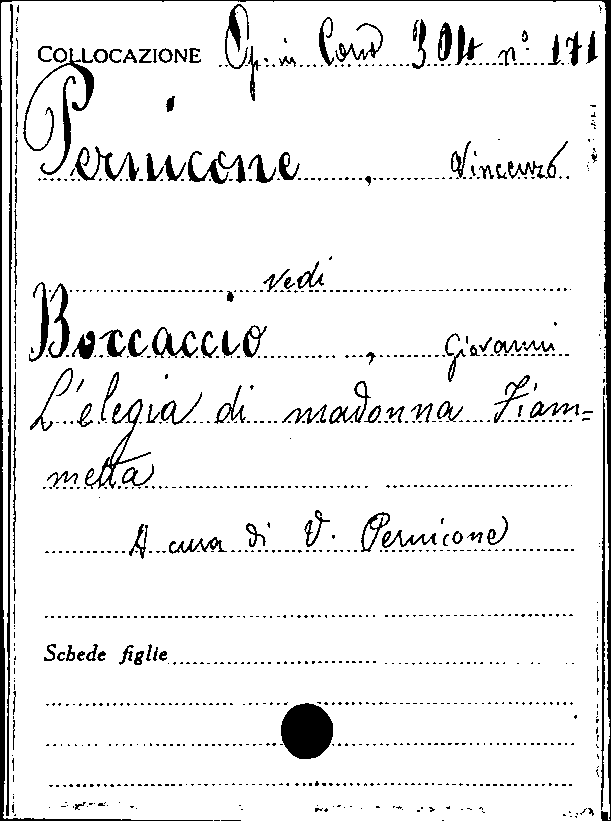 COLLOCAZIONE Op. in Corso 304 n° 171
Pernicone, Vincenzo
vedi
Boccaccio, Giovanni
L'elegia di madonna Fiam=
metta
A cura di V. Pernicone
Schede figlie